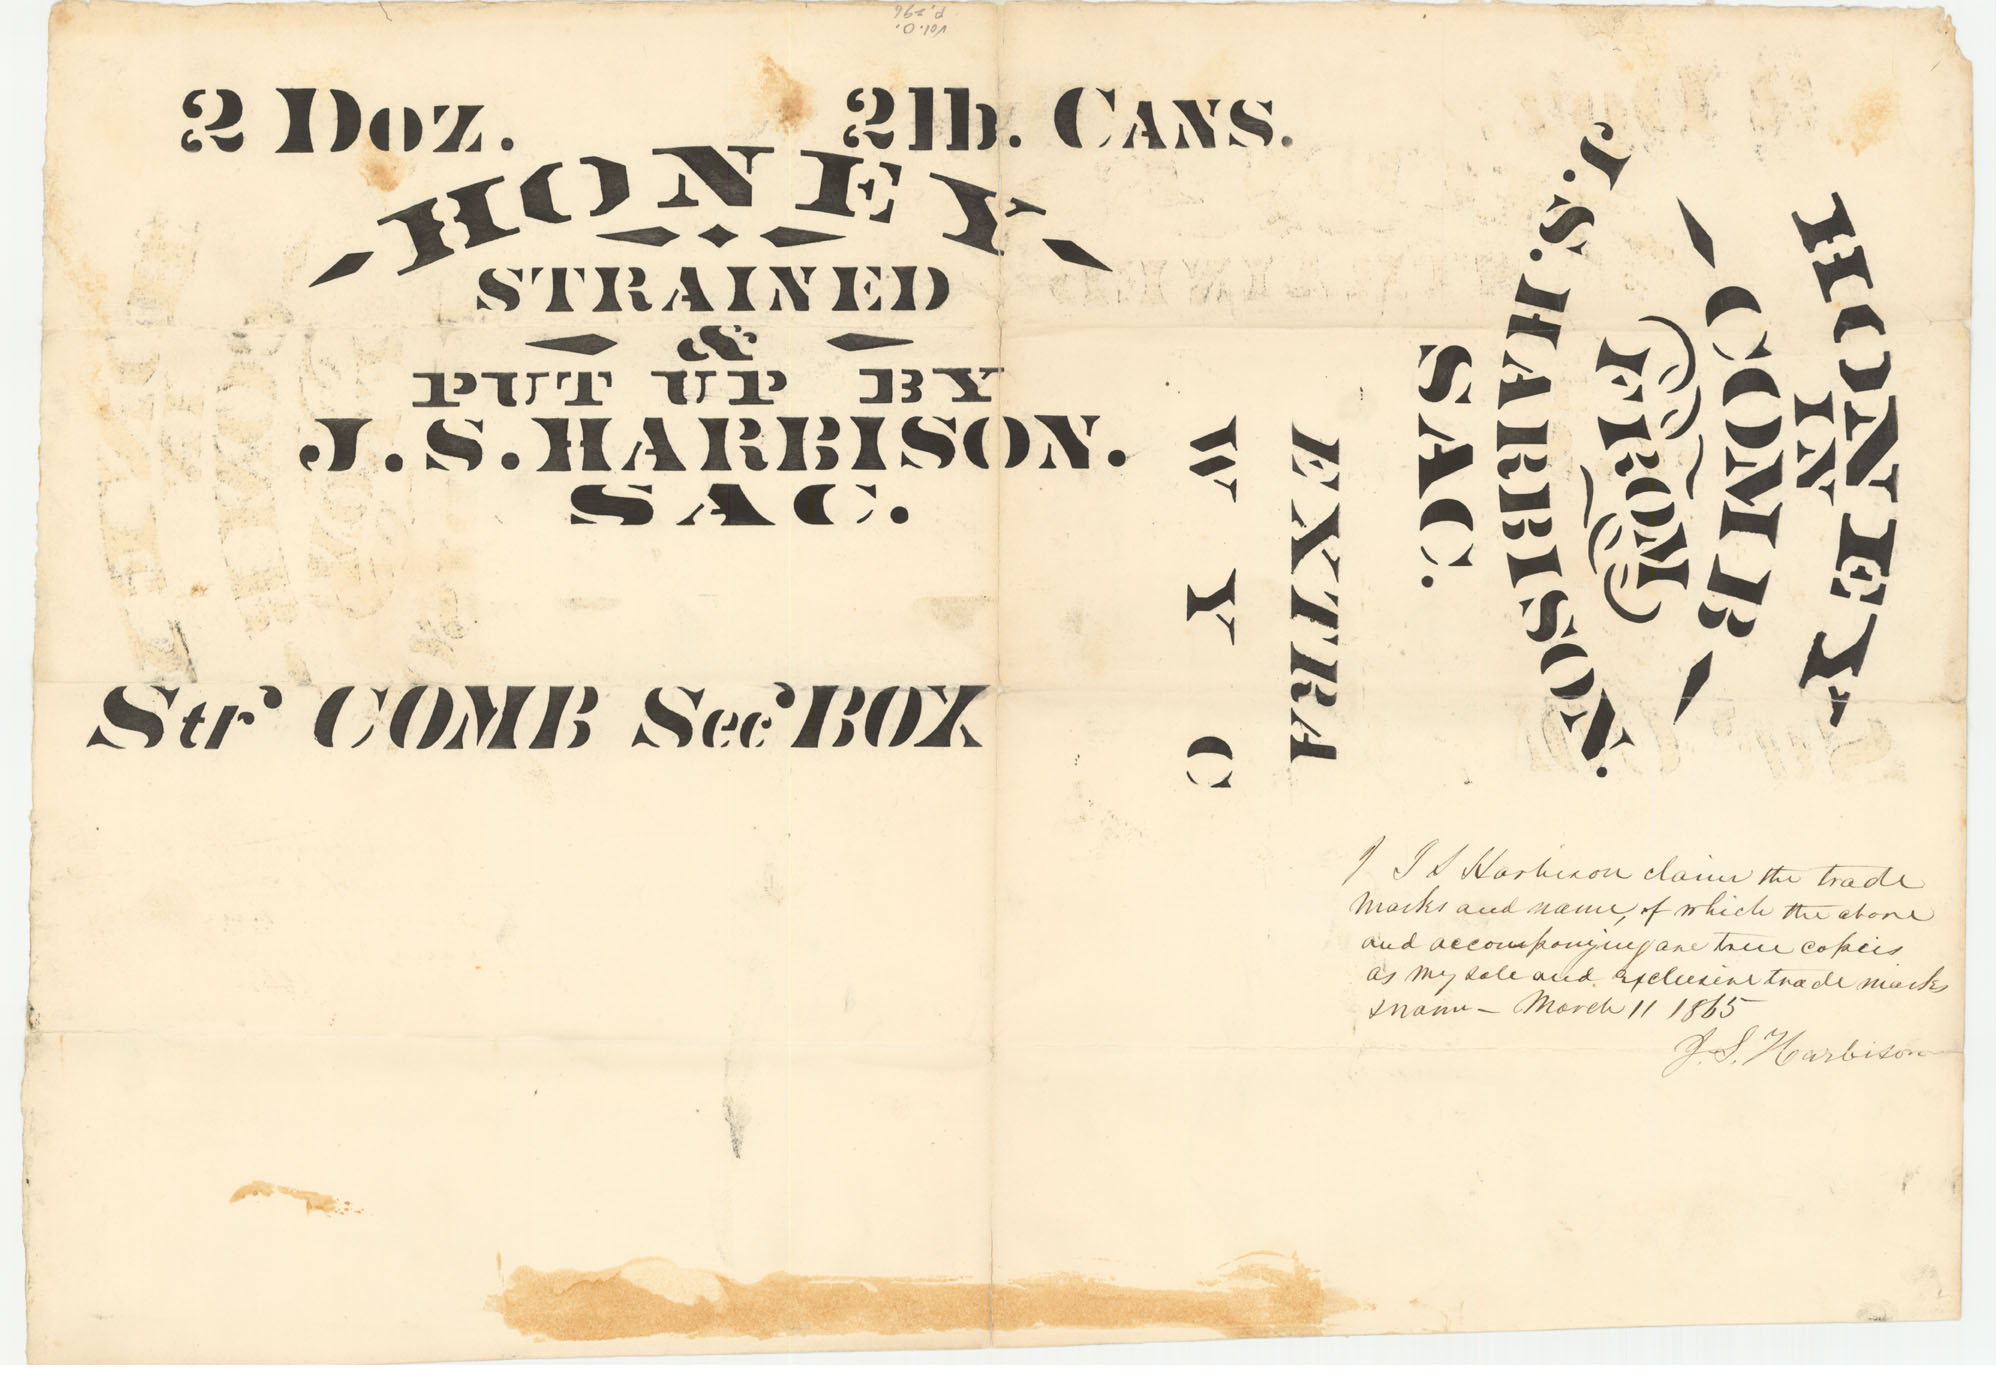 Vol. O.
P. 296
2 Doz. 2lb. CANS.
HONEY
STRAINED
&
PUT UP BY
J. S. HARBISON.
SAC.
Str' COMB Sec' BOX
HONEY
IN
COMB
FROM
J. S. HARBISON.
SAC.
EXTRA
W Y C
I J S Harbison claim the trade
marks and name, of which the above
and accompanying are true copies
as my sole and exclusive trade marks
& name – March 11 1865
J. S. Harbison